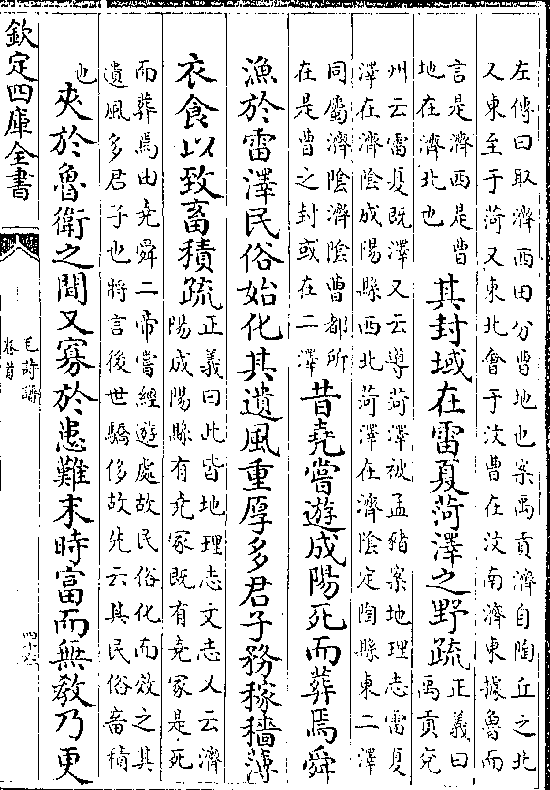 左傳曰取濟西田分曹地也案禹貢濟自陶丘之北
又東至于菏又東北會于汶曹在汶南濟東據魯而
言是濟西是曹
地在濟北也
其封域在雷夏菏澤之野疏
正義曰
禹貢兖
州云雷夏既澤又云導菏澤被孟豬案地理志雷夏
澤在濟陰成陽縣西北菏澤在濟陰定陶縣東二澤
同屬濟陰濟陰曹都所
在是曹之封或在二澤
昔堯嘗遊成陽死而葬焉舜
漁於雷澤民俗始化其遺風重厚多君子務稼穡薄
衣食以致畜積疏
正義曰此皆地理志文志又云濟
陽成陽縣有堯冢既有堯冢是死
而葬焉由堯舜二帝嘗經遊處故民俗化而效之其
遺風多君子也將言後世驕侈故先云其民俗畜積
也
夾於魯衛之間又寡於患難末時富而無教乃更
欽定四庫全書
毛詩譜